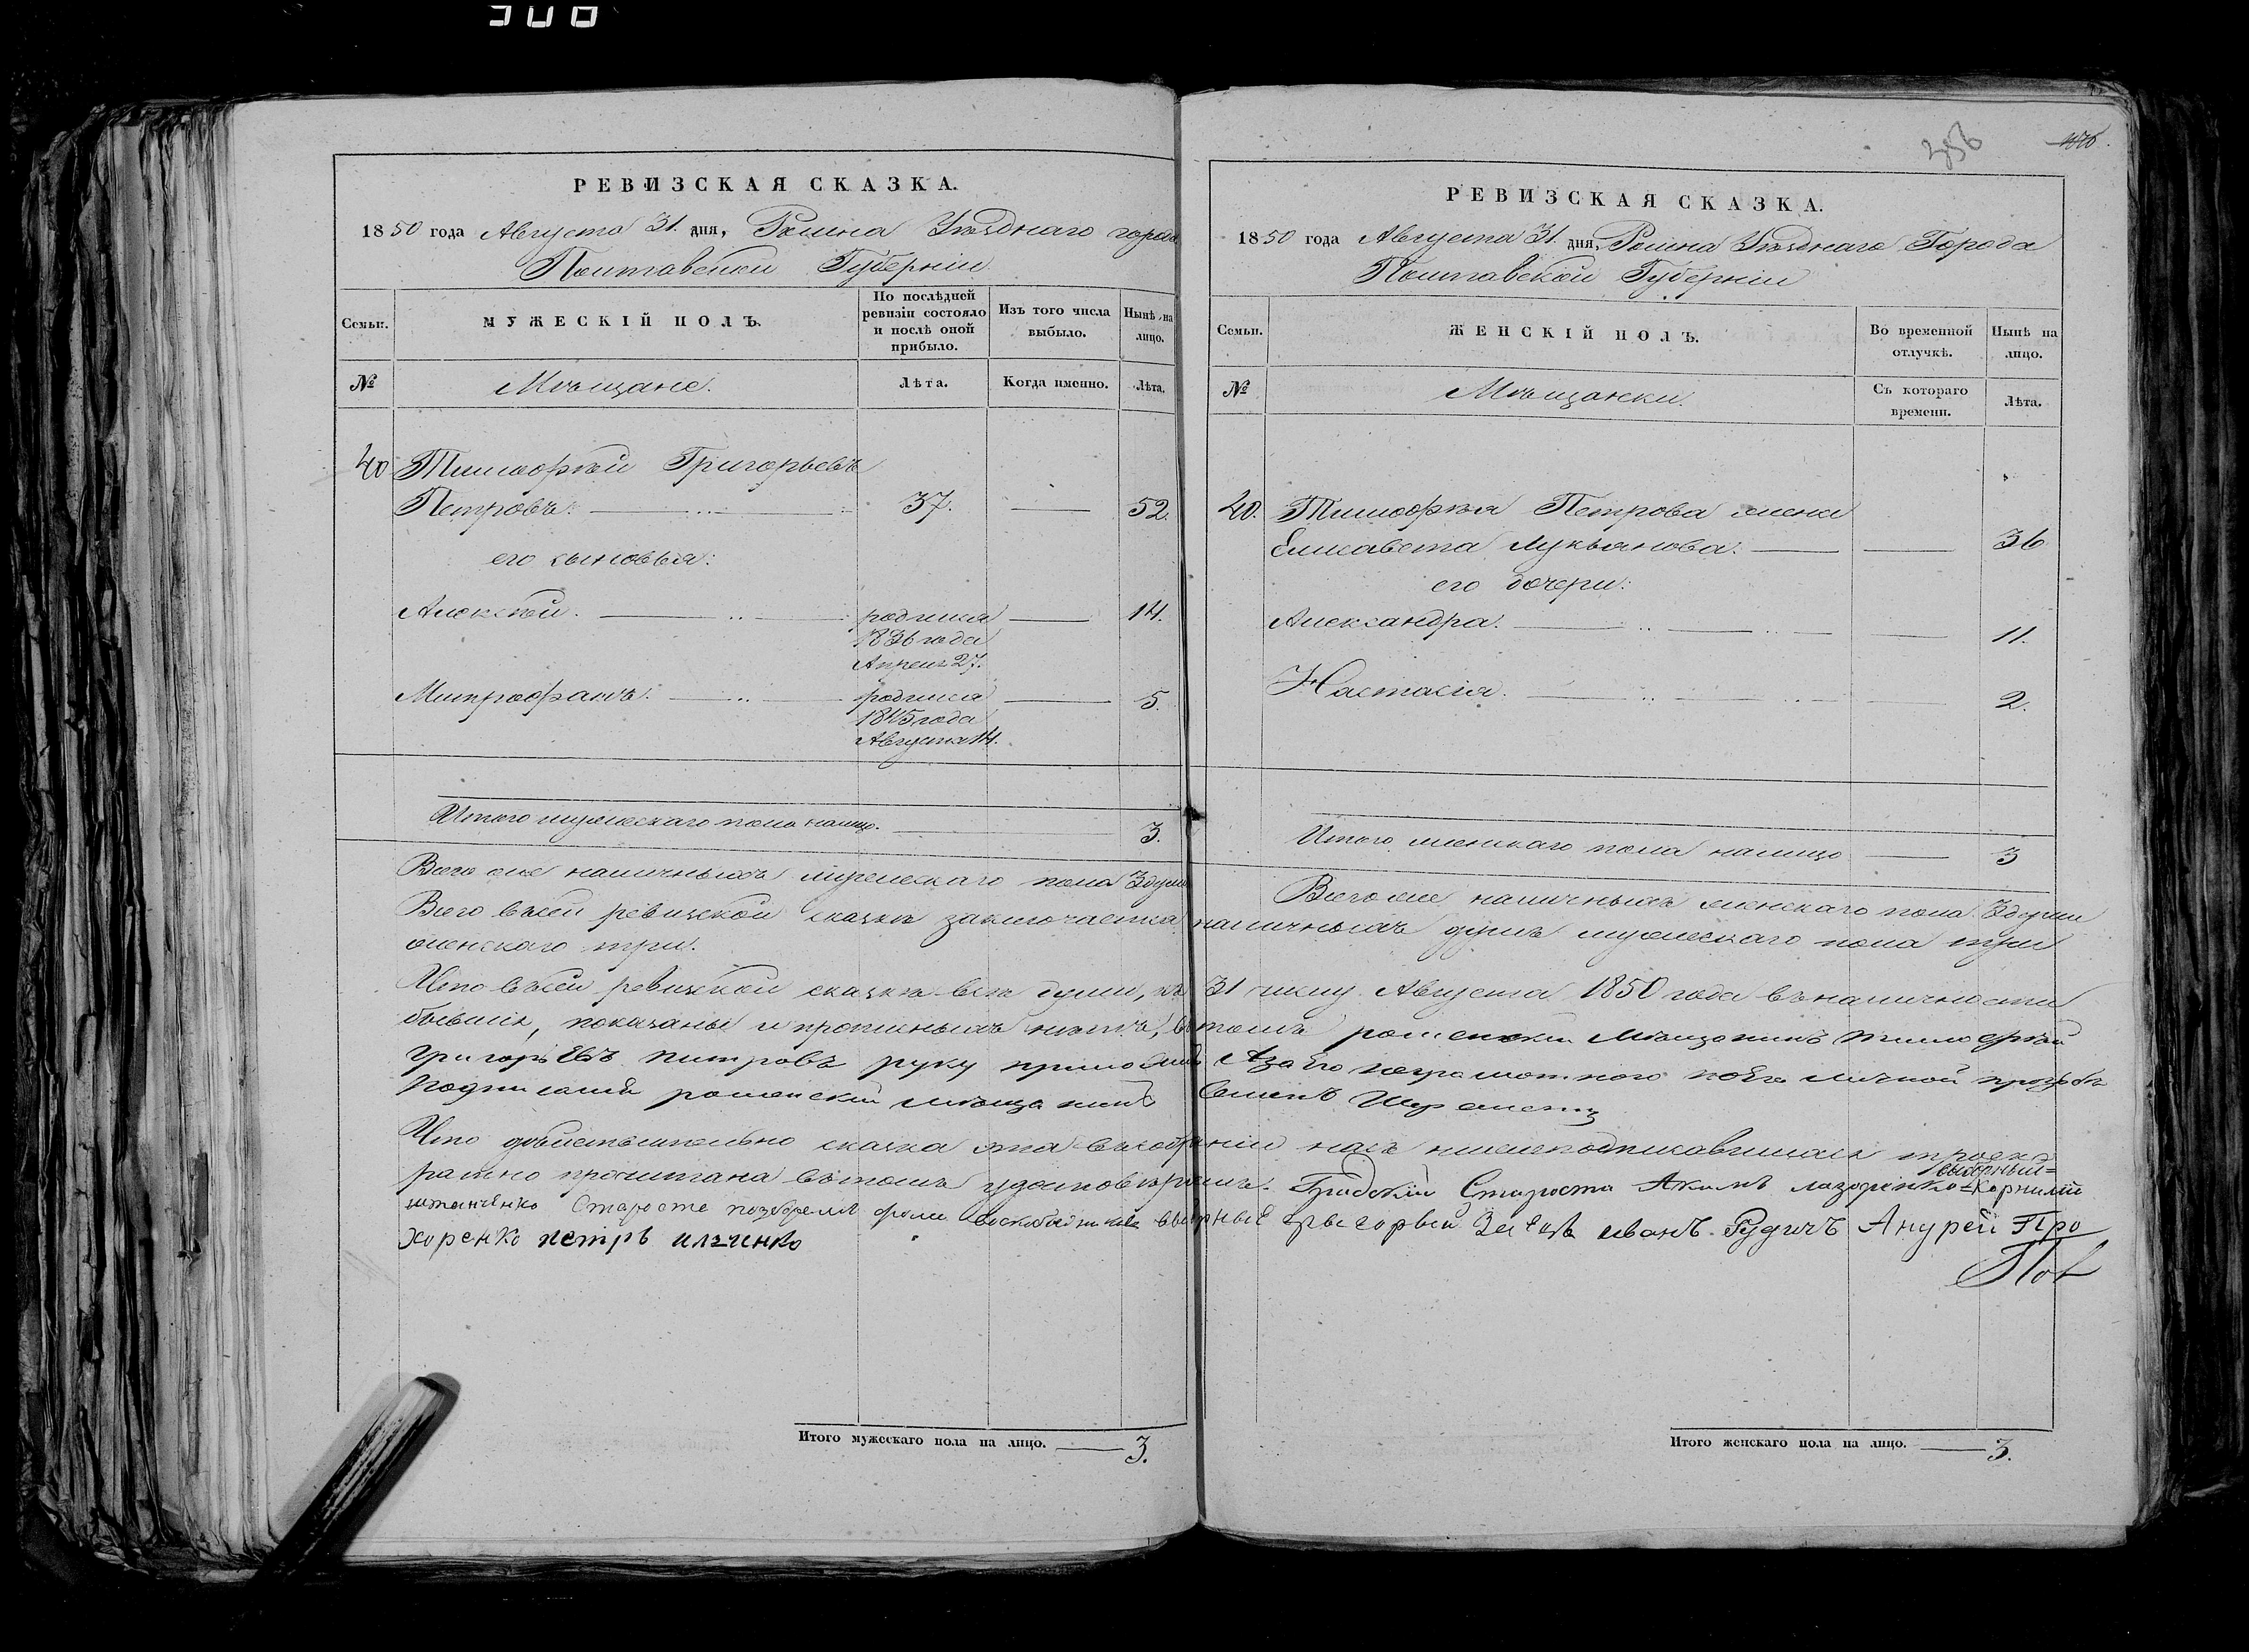 300
РЕВИЗСКАЯ СКАЗКА.
1850 года Августа 31. дня, Ромна Уѣзднаго города
Полтавской Губерніи
Семьи.
МУЖЕСКІЙ ПОЛЪ.
По послѣдней ревизіи состояло и послѣ оной прибыло.
Изъ того числа выбыло.
Нынѣ на лицо.
№
Мѣщане.
Лѣта.
Когда именно.
Лѣта.
40 Тимофѣй Григорьевъ
Петровъ. 37. 52.
его сыновья:
Алексѣй. родился 14.
1836 года
Апреля 27.
Митрофанъ. родился 5.
1845 года
Августа 14.
Итого мужескаго пола налицо. 3.
356
РЕВИЗСКАЯ СКАЗКА.
1850 года Августа 31. дня, Ромна Уѣзднаго Города
Полтавской Губерніи
Семьи.
ЖЕНСКІЙ ПОЛЪ.
Во временной отлучкѣ.
Нынѣ на лицо.
№
Мѣщанки.
Съ котораго времени.
Лѣта.
40. Тимофѣя Петрова жена
Елисавета Лукьянова. 36
его дочери:
Александра. 11.
Настасія. 2.
Итого женскаго пола налицо 3
Всего же наличныхъ мужескаго пола 3 души
Всего же наличныхъ женскаго пола 3 души
Всего въ сей ревизской сказкѣ заключается наличныхъ душъ мужескаго пола три
женскаго три.
Что въ сей ревизской сказкѣ всѣ души, къ 31 числу Августа 1850 года въ наличности
бывшія, показаны и прописныхъ нѣтъ, въ томъ роменский мѣщанинъ тимофѣй
григорьевъ питровъ руку приложилъ А за его неграмотного по его личной прозбѣ
подписалъ роменский мѣщанинъ Семенъ
Что дѣйствительно сказка эта въ собраніи насъ нижеподписавшихся троек
ратно прочитана въ томъ удостовѣряемъ. Градский Староста Акимъ лазоренко = Корнилій
выборный =
Старосте выбрные Иванъ Рудичъ Андрей Про
хоренко петръ илченко
Пов
Итого мужескаго пола на лицо. 3.
Итого женскаго пола на лицо. 3.